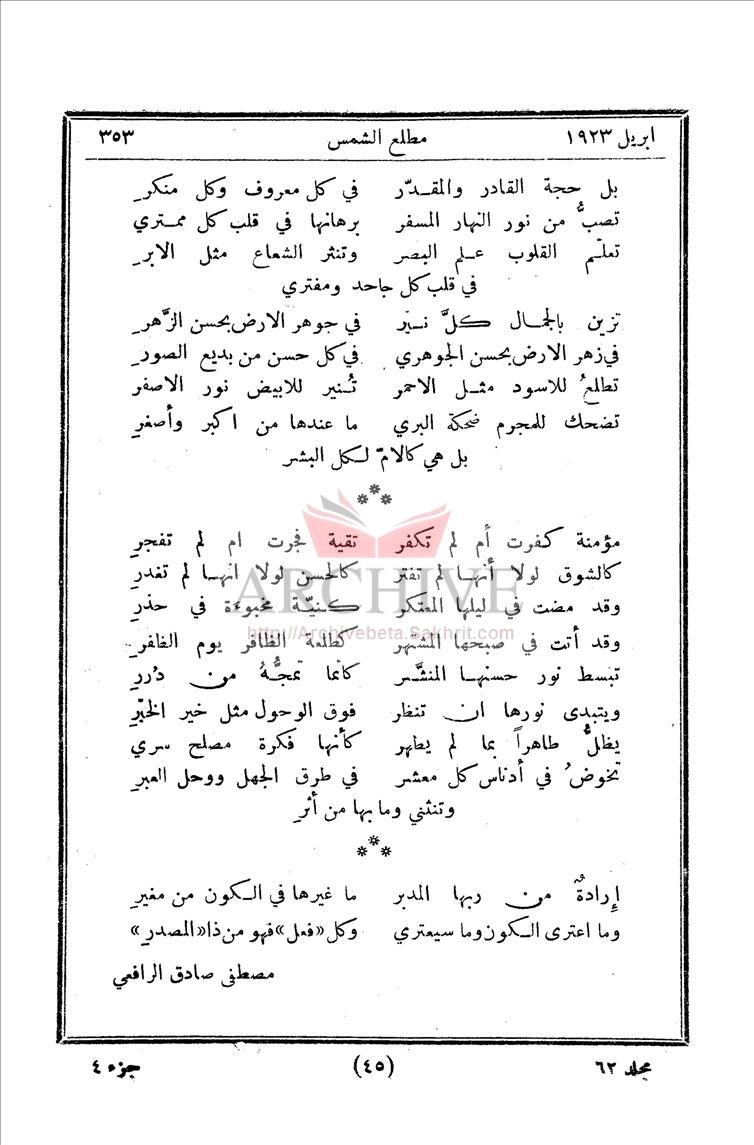 ابريل ١٩٢٣ مطلع الشمس ٣٥٣
بل حجة القادر والمقـدّر في كل معروف وكل منكرِ
تصبُّ من نور النهار المسفر برهانها في قلب كل ممتري
تعلّم القلوب علم البصر وتنثر الشعاع مثل الابرِ
في قلب كل جاحد ومفتري
تزين بالجمال كلَّ نـيّر في جوهر الارض بحسن الزَّهرِ
في زهر الارض بحسن الجوهري في كل حسن من بديع الصورِ
تطلعُ للاسود مثل الاحمر تُنير للابيض نور الاصفر
تضحك للمجرم ضحكة البري ما عندها من اكبر وأصغرِ
بل هي كالامّ لكل البشر
***
مؤمنة كفرت أم لم تكفر تقية فجرت ام لم تفجرِ
كالشوق لولا أنها لم تفتر كالحسن لولا انها لم تغدرِ
وقد مضت في ليلها المعتكر كنيّة مخبوءة في حذرِ
وقد أتت في صبحها المشتهر كطلعة الظافر يوم الظفرِ
تبسط نور حسنها المنتشر كانما تمجُّهُ من دُررِ
ويتبدى نورها ان تنظر فوق الوحول مثل خير الخيّرِ
يظلُّ طاهراً بما لم يطهر كأنها فكرة مصلح سري
تخوضُ في أدناس كل معشر في طرق الجهل ووحل العبرِ
وتنثني وما بها من أثرِ
***
إرادةٌ من ربها المدبر ما غيرها في الكون من مغيرِ
وما اعترى الكون وما سيعتري وكل «فعل» فهو من ذا «المصدرِ»
مصطفى صادق الرافعي
مجلد ٦٢ (٤٥) جزء ٤
ARCHIVE
http://Archivebeta.Sakhrit.com